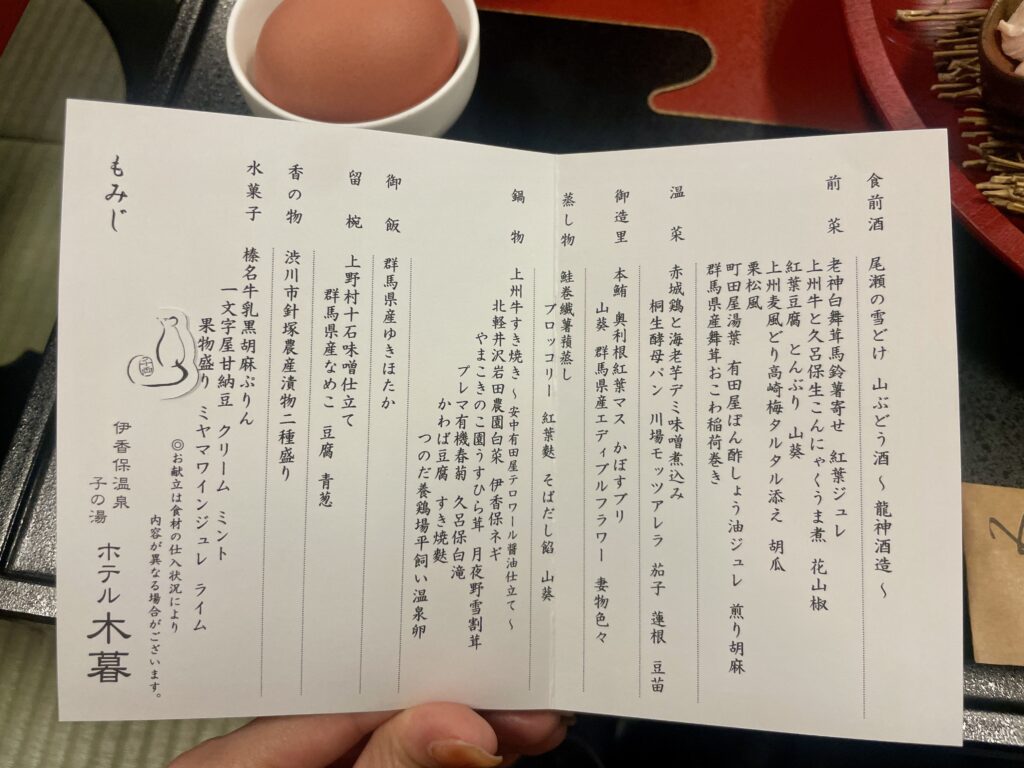 食前酒 尾瀬の雪どけ 山ぶどう酒 ~ 龍神酒造 ~
前菜 老神白舞茸馬鈴薯寄せ 紅葉ジュレ
上州牛と久呂保生こんにゃくうま煮 花山椒
紅葉豆腐 とんぶり 山葵
上州麦風どり高崎梅タルタル添え 胡瓜
栗松風
町田屋湯葉 有田屋ぽん酢しょうゆジュレ 煎り胡麻
群馬県産舞茸おこわ稲荷巻き
温菜 赤城鶏と海老芋デミ味噌煮込み
桐生酵母パン 川場モッツアレラ 茄子 蓮根 豆苗
御造里 本鮪 奥利根紅葉マス かぼすブリ
山葵 群馬県産エディブルフラワー 妻物色々
蒸し物 鮭巻繊薯蕷蒸し
ブロッコリー 紅葉麩 そばだし餡 山葵
鍋物 上州牛すき焼き ~ 安中有田屋テロワール醤油仕立て ~
北軽井沢岩田農園白菜 伊香保ネギ
やまこきのこ園うすひら茸 月夜野雪割茸
プレマ有機春菊 久呂保白滝
かわば豆腐 すき焼麩
つのだ養鶏場平飼い温泉卵
御飯 群馬県産ゆきほたか
留椀 上野村十石味噌仕立て
群馬県産なめこ 豆腐 青葱
香の物 渋川市針塚農産漬物二種盛り
水菓子 榛名牛乳黒胡麻ぷりん
一文字屋甘納豆 クリーム ミント
果物盛り ミヤマワインジュレ ライム
◎お献立は食材の仕入状況により
内容が異なる場合がございます。
もみじ
伊香保温泉
子の湯 ホテル木暮